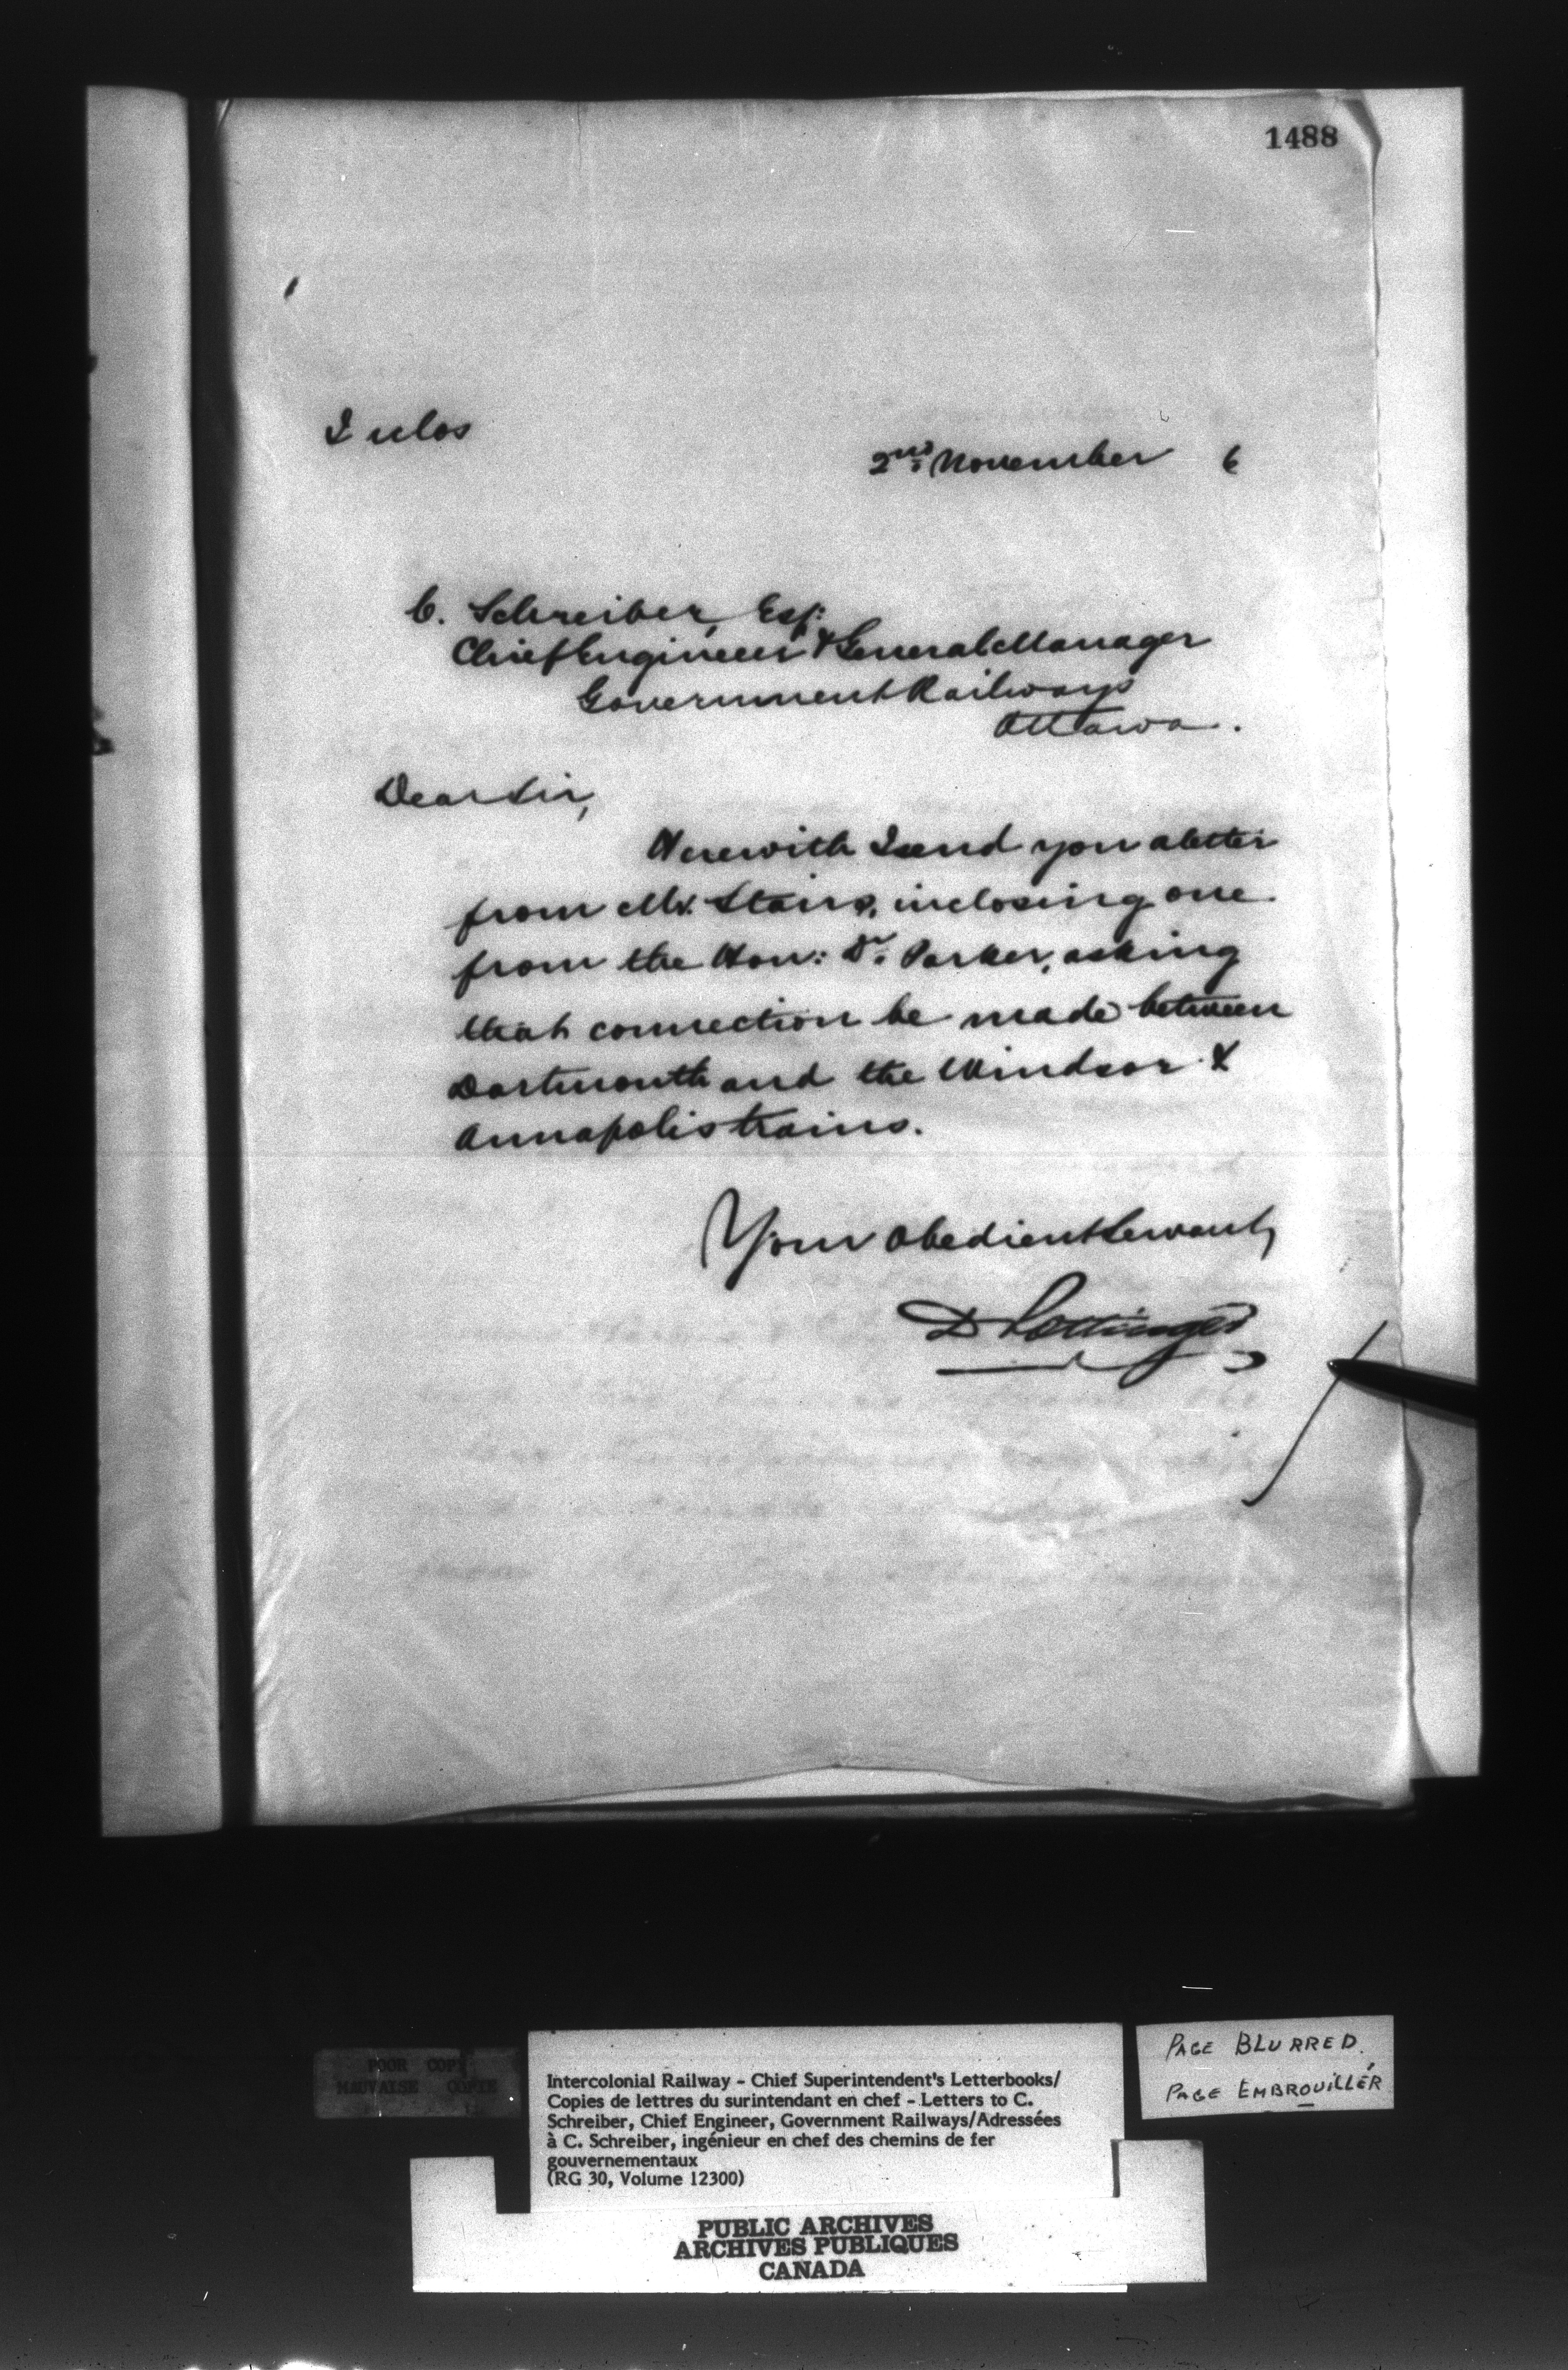 1488
2 Inclos
2nd November 6
C. Schreiber, Esq:
Chief Engineer & General Manager
Government Railways
Ottawa.
Dear Sir,
Herewith I send you a letter
from Mr. Stairs, inclosing one
from the Hon: Dr. Parker, asking
that connection be made between
Dartmouth and the Windsor &
Annapolis trains.
Your obedient Servant,
D Pottinger
POOR COPY
MAUVAISE COPIE
Intercolonial Railway - Chief Superintendent's Letterbooks/
Copies de lettres du surintendant en chef - Letters to C.
Schreiber, Chief Engineer, Government Railways/Adressées
à C. Schreiber, ingénieur en chef des chemins de fer
gouvernementaux
(RG 30, Volume 12300)
PAGE BLURRED.
PAGE EMBROUILLÉR
PUBLIC ARCHIVES
ARCHIVES PUBLIQUES
CANADA